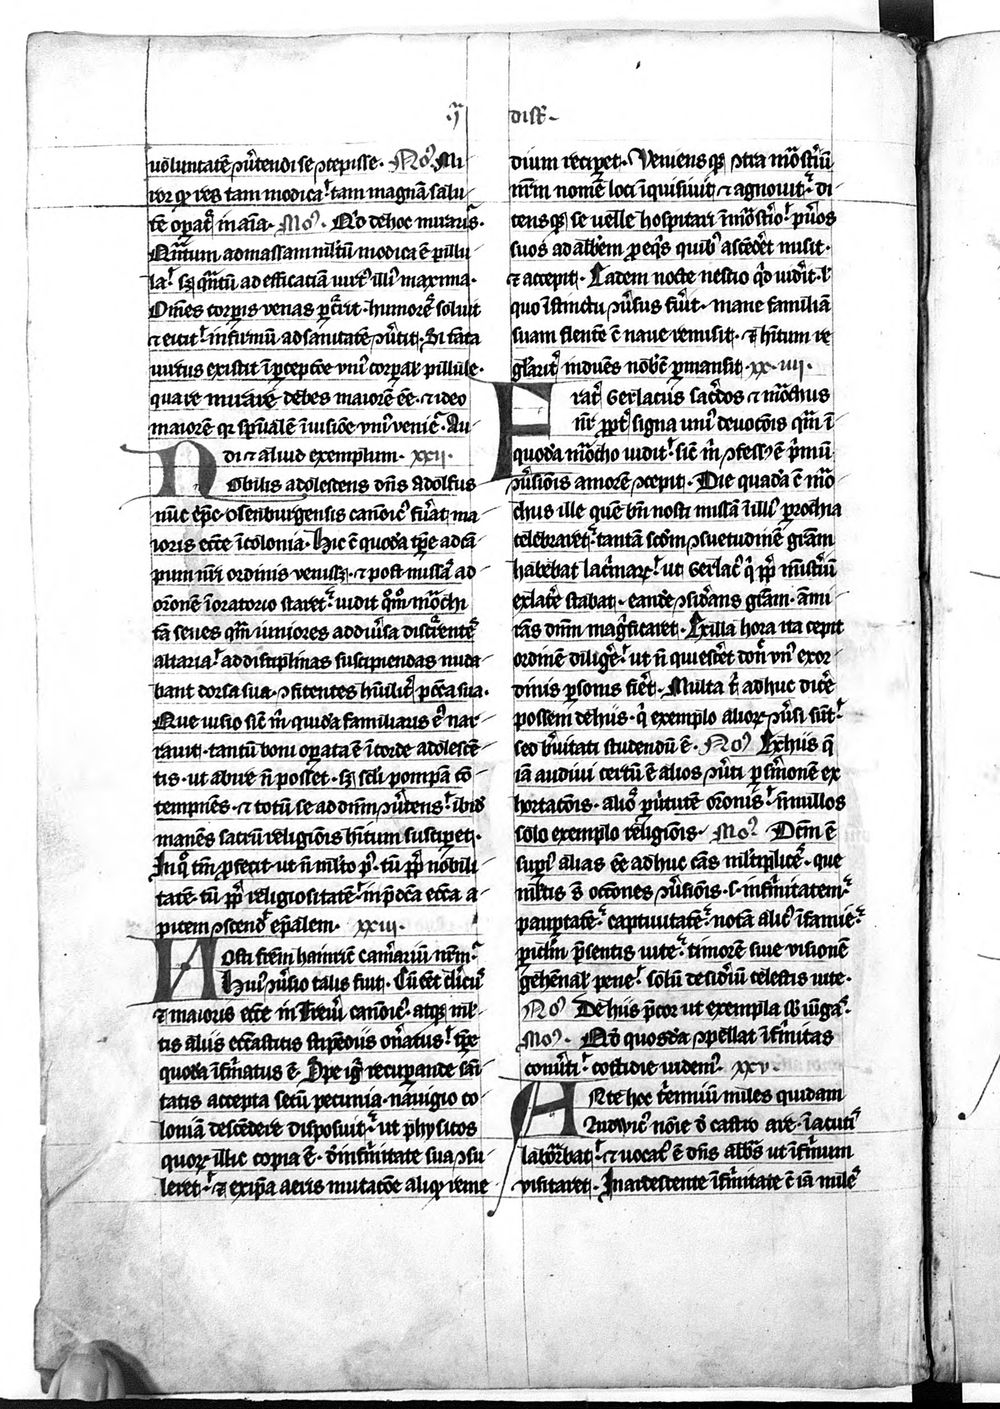 .j.
dist.
uoluntatē ꝯũtendi se ꝯcepisse. Noꝰ. Mi
ror qꝫ res tam modica tam magnā salu
tē opat᷑ in aīa. Moꝰ. No de hoc miraris.
Nntum ad massam mltū modica ē pillu
la sꝫ qntū ad efficaciā uirtꝰ illiꝰ maxima.
Om̄es corpis venas ꝑcrit. humores soluit
⁊ eicit. infirmū ad sanitatē ꝯũtit. Si tāta
uirtus existit ī ꝑceptōe vniꝰ corꝑalis pillule.
quare mirarē debes maiorē ēē. ⁊ ideo
maiorē qꝛ spūalē ī iuisiōe vniꝰ venie. Au
di ⁊ aliud exemplum. xxij.
Nobilis adolescens dn̄s Adolfus
nūc ēpc osenburgensis canoic᷑ fūat ma
ioris ecc̄e ī colonia. Hic c̄ quodā tp̄e ad cā
pum nr̄i ordinis venissꝫ. ⁊ post missā ad
or̄onē ī oratorio staret. uidit qm̊ mōchi
tā senes qm iuniores ad diũsa discr̄entē
altaria ad disciplinas suscipiendas nuda
bant dorsa sua. ꝯfitentes huilit᷑ pcc̄a sua.
Que uisio sic̄ m̊ quidā familiaris eꝰ nar
rauit. tantū boni oꝑata ē ī corde adolescē
tis. ut abire n̄ posset. Sꝫ scl̄i pompā cō
tempnēs. ⁊ totū se ad dn̄m ꝯũtens ibid᷑
manēs sacrū religionis hītum suscipet.
In q̊ tm̄ ꝓfecit. ut n̄ mlto pꝰ. tū ꝓp᷑ nobili
tatē. tū ꝓp᷑ religiositatē in p̄dc̄a ecc̄a a
picem ꝯscend᷑ ep̄alem. xxiij.
Nosti fr̄em hainricū cam̄ariū nr̄m.
Huiꝰ ꝯũsio talis fuit. Cū eēt clicꝰ
⁊ maioris ecc̄e in Treũ canoicꝰ. atqꝫ ml
tis aliis ecc̄asticis stipēdiis on̄atus tp̄e
quodā īf̄matus ē. Spe igr̄ recuꝑande sāi
tatis accepta secū pecunia. nauigio co
loniā descēdere disposuit. ut physicos
quoꝝ illic copia ē. d̄ infirmitate sua ꝯsu
leret. ⁊ ex ip̄a aeris mutacōe aliqꝫ reme
dium reciꝑet. Veniens qꝫ ꝯtra mōstiū
nr̄m nomē loci īquisiuit ⁊ agnouit. di
censqꝫ se uelle hospitari ī mōstio. pūos
suos ad albem ꝑ eqs quib᷑ ascēdet misit.
⁊ accepit. Eadem nocte nescio qd vidit. l᷑
quo īstinctu ꝯũsus fũit. mane familiā
suam flente c̄ naue remisit. ⁊ hītum re
glarit᷑ induēs nob̄c ꝑmansit. xx.iiij.
Frat᷑ Gerlacus sac̄dos ⁊ mōchus
nr̄. ꝓpt᷑ signa uni᷑ deuocōis qm ī
quodā mōcho uidit sic̄ m̊ ꝯfessꝰ ē p̄mū
ꝯũsionis amorē ꝯcepit. Die quadā c̄ mō
chus ille quē bn̄ nosti missā ī illiꝰ ꝑrochia
celebraret. tantā scd̄m ꝯsuetudinē gr̄am
habebat lac̄imaꝝ. ut Gerlac᷑ q̊ ꝓp᷑ mistiū
exlate stabat. eandē ꝯsid̄ans gr̄am. ami
rās dn̄m mag̊ficaret. Ex illa hora ita cepit
ordinē dilig̊e. ut n̄ quiesc̄et don᷑ vn᷑ ex or
dinis ꝑsonis fiet. Multa t᷑ adhuc dic̄e
possem de hiis. q̊ exemplo alioꝝ ꝯũsi sūt
sed breuitati studendū ē. Noꝰ Ex hiis q̄
iā audiui certū ē alios ꝯũti ꝑ s̄monē ex
hortacōis. alios ꝑ uirtutē oronis. n̄nullos
solo exemplo religionis. Moꝰ. Dc̄m ē
supiꝰ alias eē adhuc cās mltiplicē. que
mltis s᷑ occōnes ꝯũsionis. s. infirmitatem.
pauptatē. captiuitatē. notā alic᷑ īfamie.
piclm̄ p̄sentis uite. timorē siue visionē
gehēnal᷑ pene. solū desid̄iū celestis uite.
Noꝰ De hiis p̄cor ut exempla sb iūgas.
Moꝰ. No quosdā ꝯpellat īf̄mitas
conũti. cottidie videm᷑. xxv.
Ante hoc tēniū miles quidam
Ludwic᷑ nōie d̄ castro are. ī acuti᷑
laborabat. ⁊ uocat᷑ ē dn̄s abbs ut īfirmum
visitaret. Inardescente īf̄mitate c̄ iā mile᷑